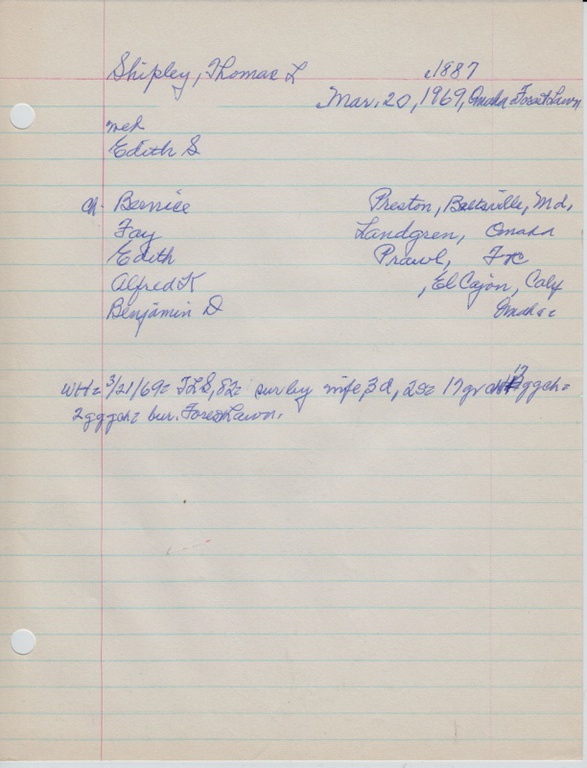 Shipley, Thomas L c1887
Mar. 20, 1969, Omaha Forest Lawn
med
Edith S
ch. Bernice Preston, Beltsville, Md.
Fay Landgren, Omaha
Edith Prawl,
Alfred K , El Cajon, Calif
Benjamin D Omaha
WH= 3/21/69= TLS, 82= sur by wife, 3d, 2s= 17 gr ch 17 ggch=
2gggch= bur. Forest Lawn.